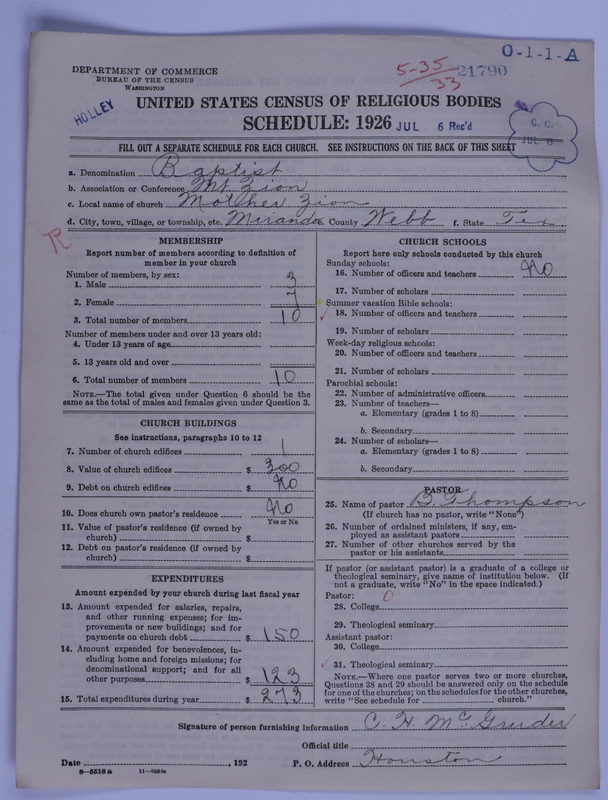 O-1-1-A
DEPARTMENT OF COMMERCE
BUREAU OF THE CENSUS
WASHINGTON
5-35
33
21790
HOLLEY
UNITED STATES CENSUS OF RELIGIOUS BODIES
SCHEDULE: 1926
JUL 6 Rec'd
C. C.
JUL 6
FILL OUT A SEPARATE SCHEDULE FOR EACH CHURCH. SEE INSTRUCTIONS ON THE BACK OF THIS SHEET
a. Denomination Baptist
b. Association or Conference Mt. Zion
c. Local name of church Mother Zion
d. City, town, village, or township, etc. Mirando e. County Webb f. State Tex
R
MEMBERSHIP
Report number of members according to definition of
member in your church
Number of members, by sex:
1. Male 3
2. Female 7
3. Total number of members 10
Number of members under and over 13 years old:
4. Under 13 years of age
5. 13 years old and over
6. Total number of members 10
NOTE.—The total given under Question 6 should be
same as the total of males and females given under Question 3.
CHURCH BUILDINGS
See instructions, paragraphs 10 to 12
7. Number of church edifices 1
8. Value of church edifices $ 300
9. Debt on church edifices $ No
10. Does church own pastor's residence? No
Yes or No
11. Value of pastor's residence (if owned by
church) $
12. Debt on pastor's residence (if owned by
church) $
EXPENDITURES
Amount expended by your church during last fiscal year
13. Amount expended for salaries, repairs,
and other running expenses; for im-
provements or new buildings; and for
payments on church debt $ 150
14. Amount expended for benevolences, in-
cluding home and foreign missions; for
denominational support; and for all
other purposes $ 123
15. Total expenditures during year $ 273
CHURCH SCHOOLS
Report here only schools conducted by this church
Sunday schools:
16. Number of officers and teachers No
17. Number of scholars
Summer vacation Bible schools:
18. Number of officers and teachers
19. Number of scholars
Week-day religious schools:
20. Number of officers and teachers
21. Number of scholars
Parochial schools:
22. Number of administrative officers
23. Number of teachers—
a. Elementary (grades 1 to 8)
b. Secondary
24. Number of scholars—
a. Elementary (grades 1 to 8)
b. Secondary
PASTOR
25. Name of pastor B. Thompson
(If church has no pastor, write "None")
26. Number of ordained ministers, if any, em-
ployed as assistant pastors
27. Number of other churches served by the
pastor or his assistants
If pastor (or assistant pastor) is a graduate of a college or
theological seminary, give name of institution below. (If
not a graduate, write "No" in the space indicated.)
Pastor: 0
28. College
29. Theological seminary
Assistant pastor:
30. College
31. Theological seminary
NOTE.—Where one pastor serves two or more churches,
Questions 28 and 29 should be answered only on the schedule
for one of the churches; on the schedules for the other churches,
write "See schedule for church."
Signature of person furnishing information C. H. McGruder
Official title
Date , 192 P. O. Address Houston
8-5518a 11-9054a